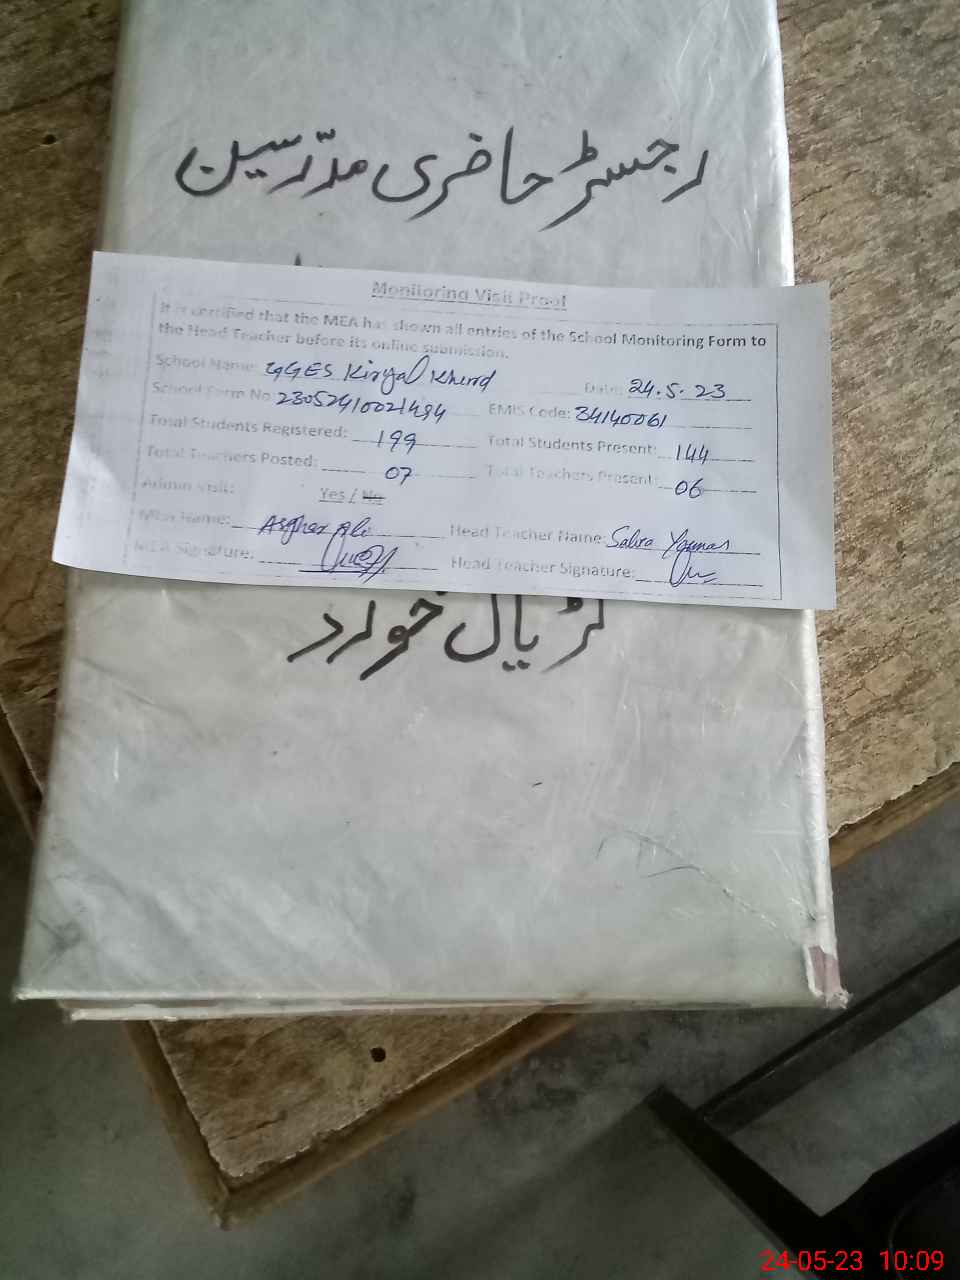 رجسٹر حاضری مدرّسین
Monitoring Visit Proof
It is certified that the MEA has shown all entries of the School Monitoring Form to
the Head Teacher before its online submission.
School Name: GGES Kiryal Khurd Date: 24.5.23
School Form No 23052410021494 EMIS Code: 34140061
Total Students Registered: 199 Total Students Present: 144
Total Teachers Posted: 07 Total Teachers Present: 06
Admin Visit: Yes / No
MEA Name: Asghar Ali Head Teacher Name: Saba Younas
MEA Signature: Head Teacher Signature:
کڑیال خورد
24-05-23 10:09